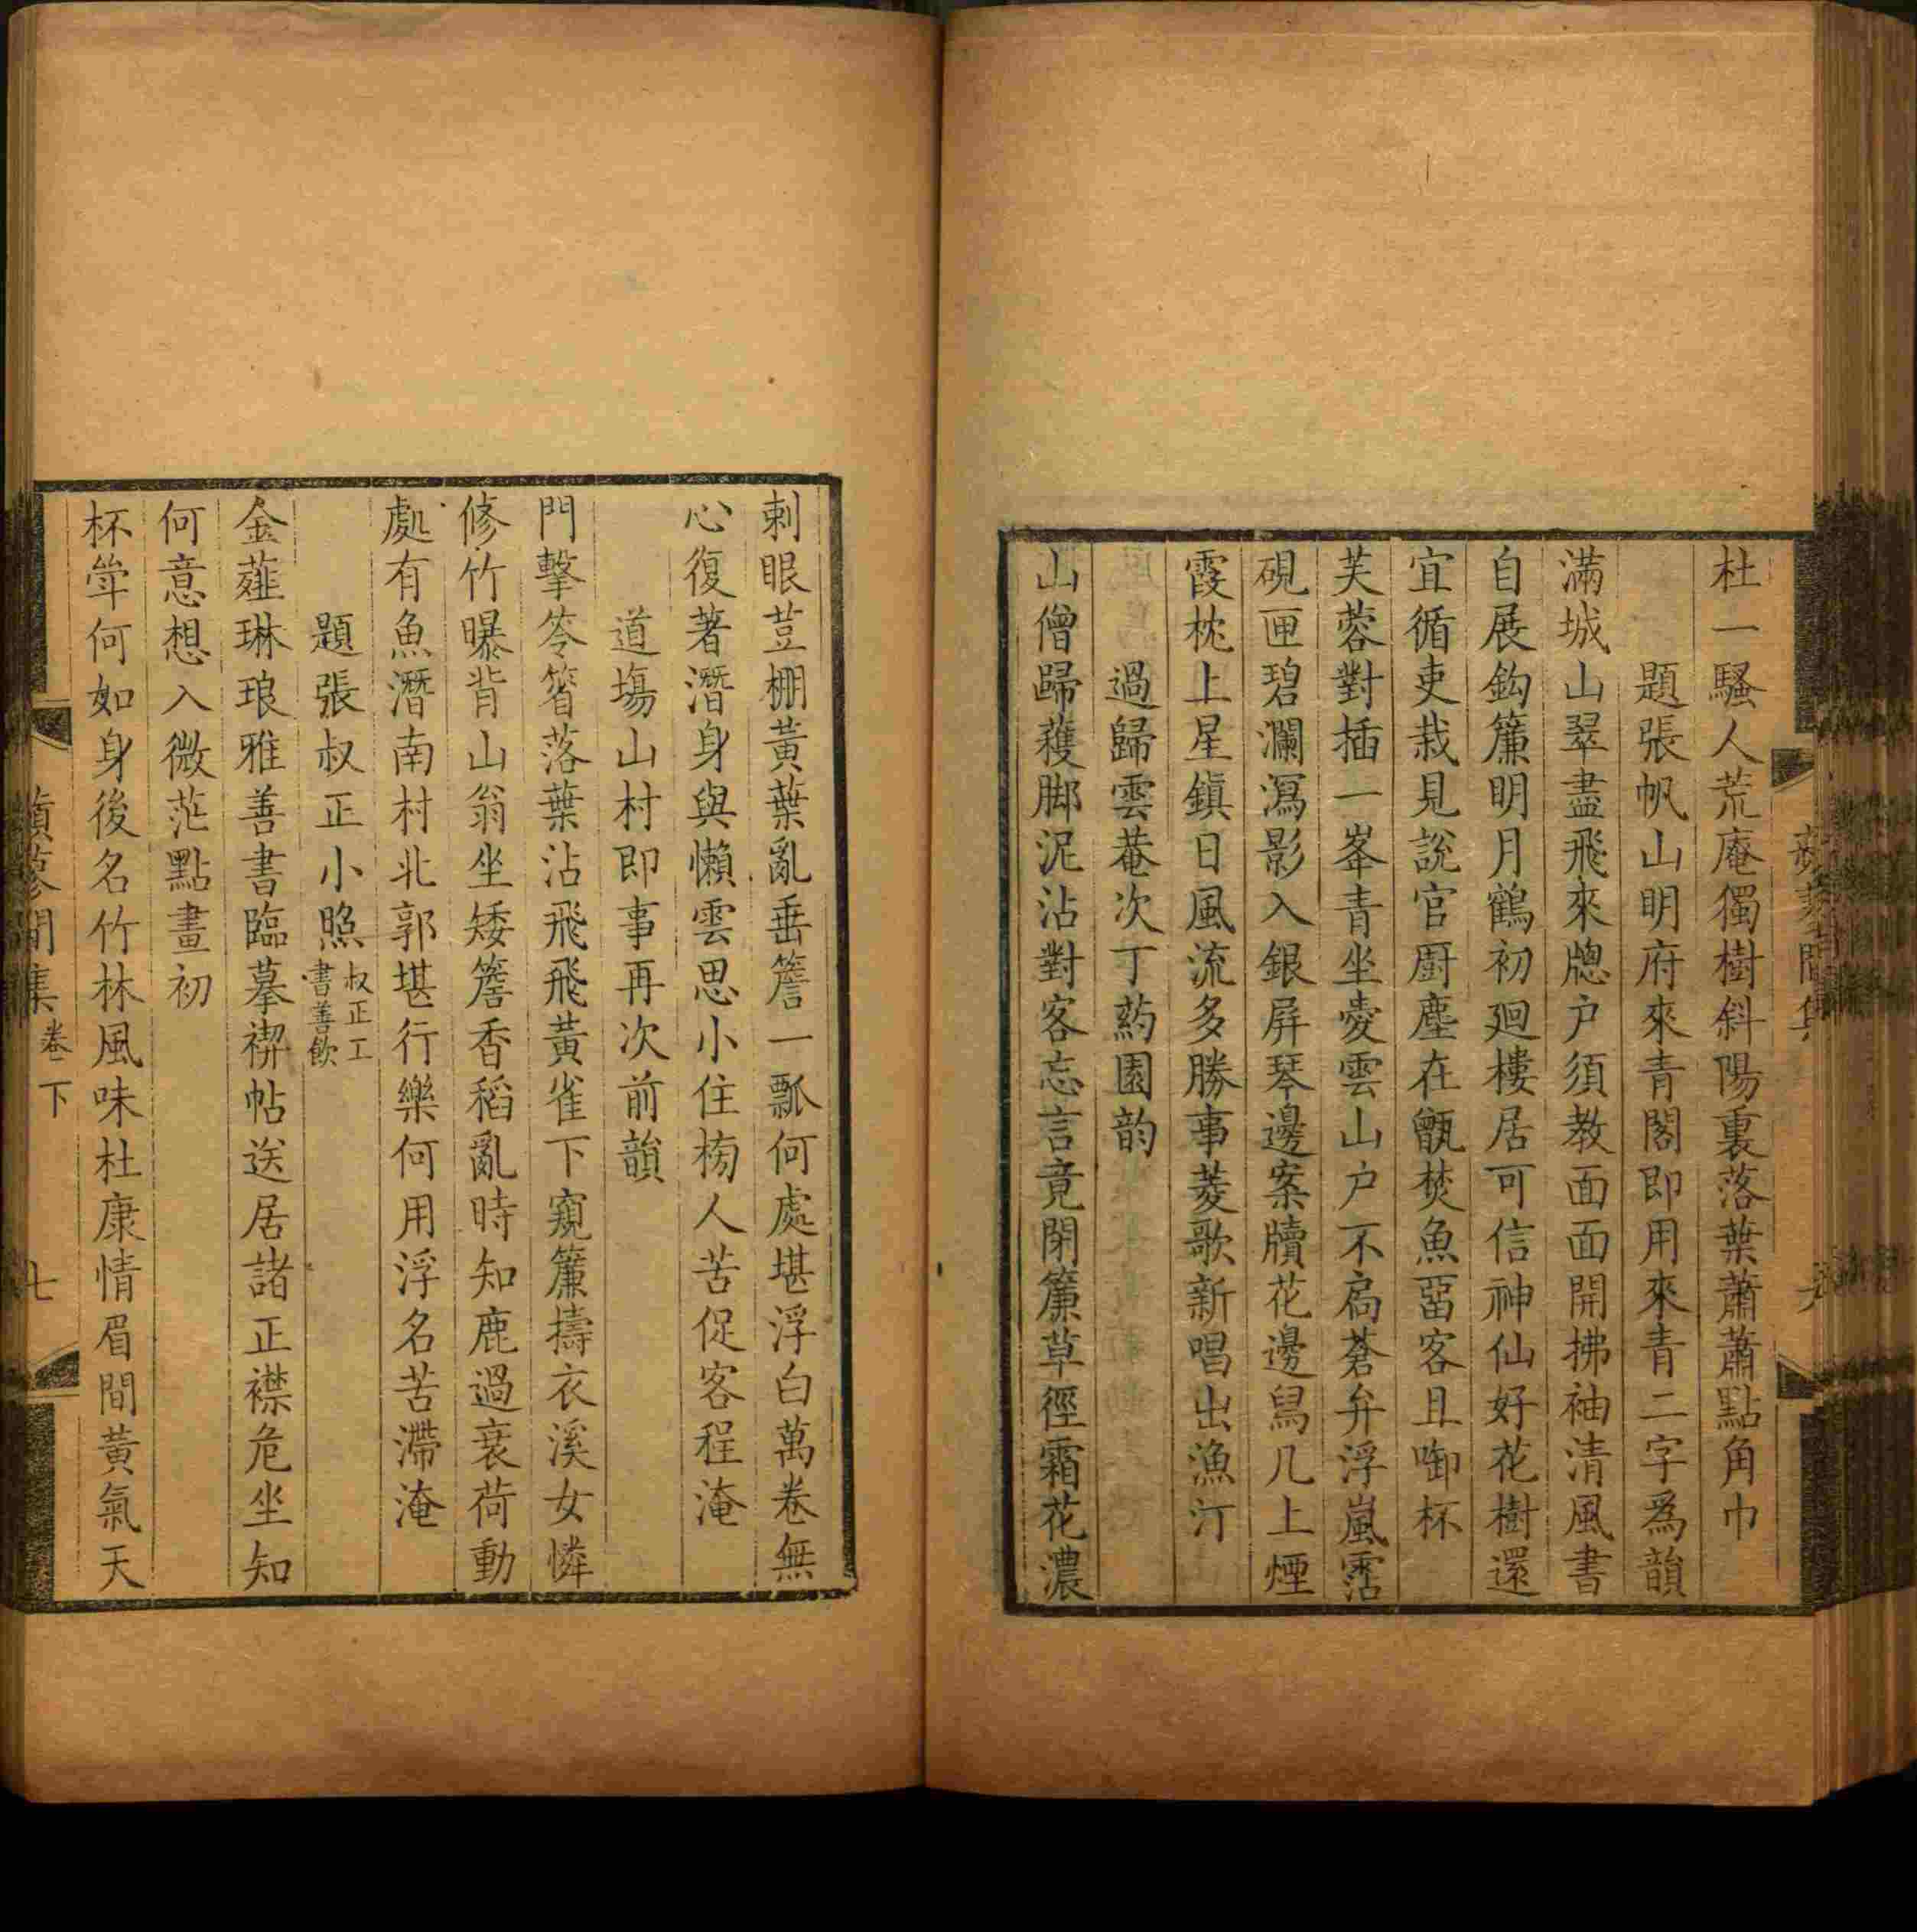 杜一騷人荒庵獨樹斜陽裏落葉蕭蕭點角巾
題張帆山明府來青閣即用來青二字爲韻
滿城山翠盡飛來牕户須教面面開拂袖清風書
自展鈎簾明月鶴初廻樓居可信神仙好花樹還
宜循吏栽見說官厨塵在甑焚魚畱客且啣杯
芙蓉對插一峯青坐愛雲山户不扃蒼弁浮嵐霑
硯匣碧瀾瀉影入銀屏琴邊案牘花邊舃几上煙
霞枕上星鎮日風流多勝事菱歌新唱出漁汀
過歸雲菴次丁葯園韵
山僧歸穫脚泥沾對客忘言竟閉簾草徑霜花濃
刺眼荳棚黃葉亂垂簷一瓢何處堪浮白萬卷無
心復著潛身與懶雲思小住榜人苦促客程淹
道塲山村即事再次前韻
門擊笭箵落葉沾飛飛黃雀下窺簾擣衣溪女憐
修竹曝背山翁坐矮簷香稻亂時知鹿過衰荷動
處有魚潛南村北郭堪行樂何用浮名苦滯淹
題張叔正小照叔正工書善飲
金薤琳琅雅善書臨摹禊帖送居諸正襟危坐知
何意想入微茫點畫初
杯斝何如身後名竹林風味杜康情眉間黃氣天
閒集卷下
七